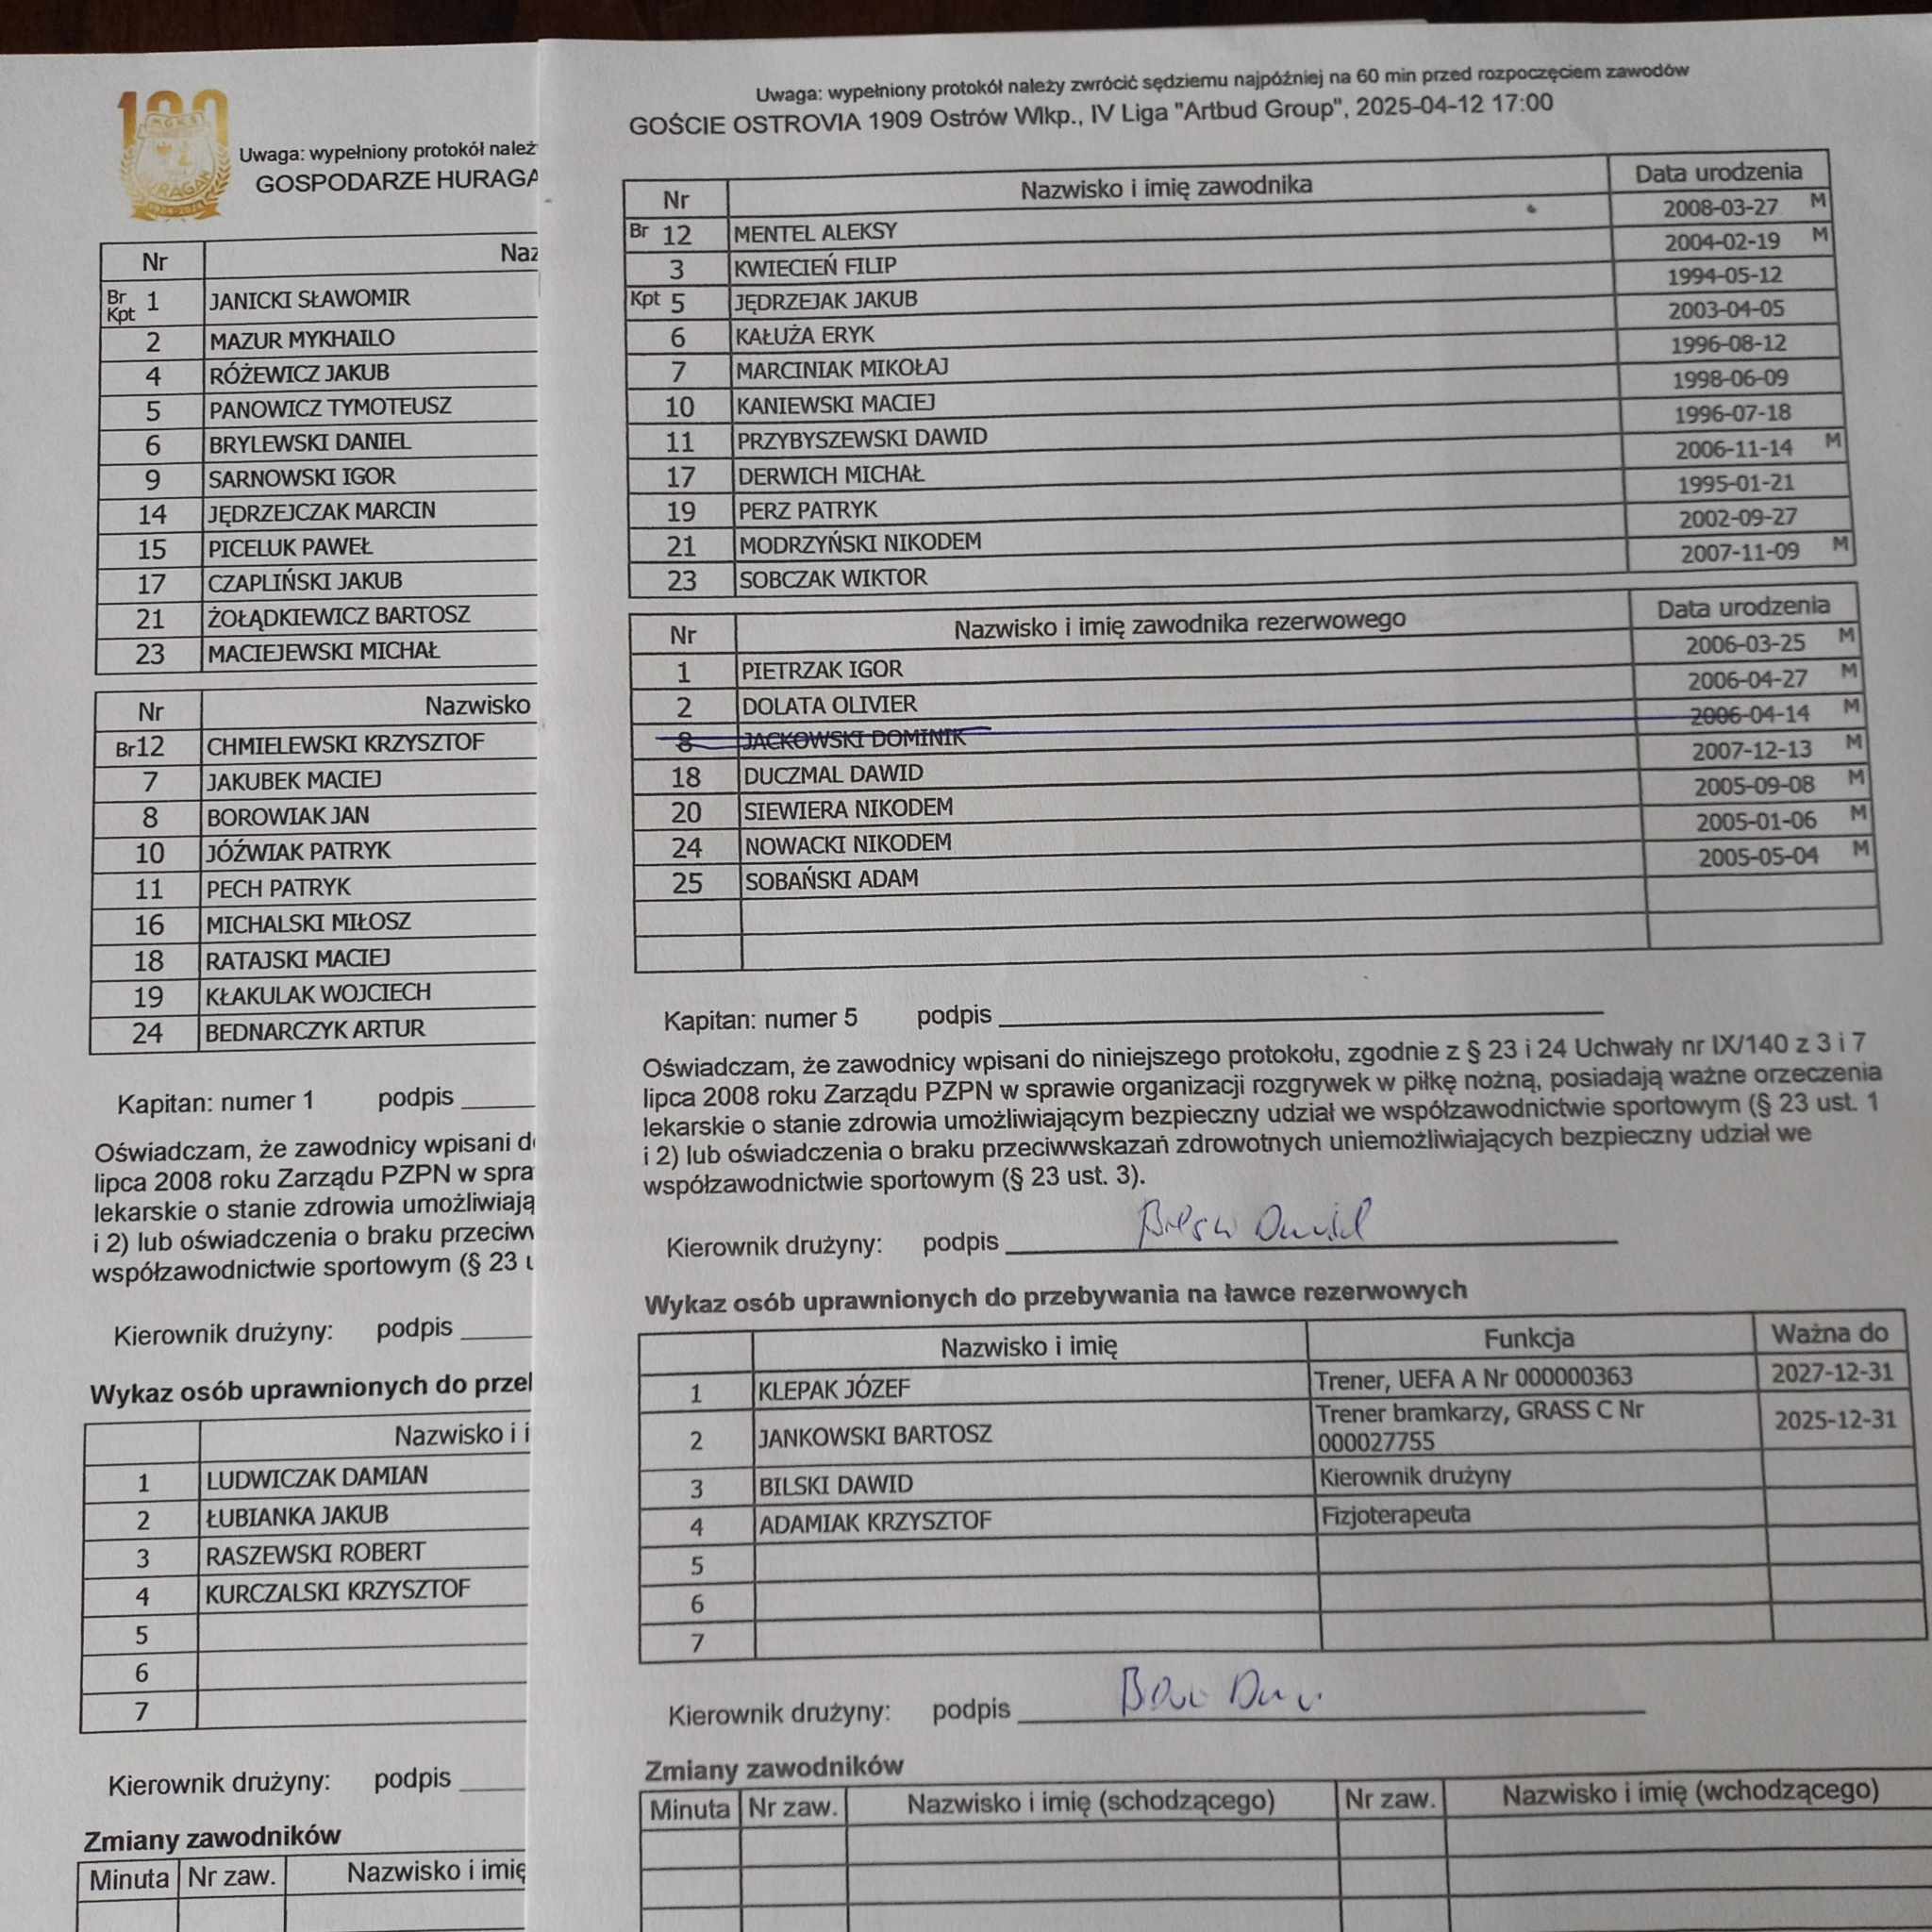 100
HURAGAN
Uwaga: wypełniony protokół należ
GOSPODARZE HURAGA
Nr Naz
Br Kpt 1 JANICKI SŁAWOMIR
2 MAZUR MYKHAILO
4 RÓŻEWICZ JAKUB
5 PANOWICZ TYMOTEUSZ
6 BRYLEWSKI DANIEL
9 SARNOWSKI IGOR
14 JĘDRZEJCZAK MARCIN
15 PICELUK PAWEŁ
17 CZAPLIŃSKI JAKUB
21 ŻOŁĄDKIEWICZ BARTOSZ
23 MACIEJEWSKI MICHAŁ
Nr Nazwisko
Br12 CHMIELEWSKI KRZYSZTOF
7 JAKUBEK MACIEJ
8 BOROWIAK JAN
10 JÓŹWIAK PATRYK
11 PECH PATRYK
16 MICHALSKI MIŁOSZ
18 RATAJSKI MACIEJ
19 KŁAKULAK WOJCIECH
24 BEDNARCZYK ARTUR
Kapitan: numer 1 podpis
Oświadczam, że zawodnicy wpisani d
lipca 2008 roku Zarządu PZPN w spra
lekarskie o stanie zdrowia umożliwiają
i 2) lub oświadczenia o braku przeciw
współzawodnictwie sportowym (§ 23 u
Kierownik drużyny: podpis
Wykaz osób uprawnionych do przel
Nazwisko i i
1 LUDWICZAK DAMIAN
2 ŁUBIANKA JAKUB
3 RASZEWSKI ROBERT
4 KURCZALSKI KRZYSZTOF
5
6
7
Kierownik drużyny: podpis
Zmiany zawodników
Minuta Nr zaw. Nazwisko i imię
Uwaga: wypełniony protokół należy zwrócić sędziemu najpóźniej na 60 min przed rozpoczęciem zawodów
GOŚCIE OSTROVIA 1909 Ostrów Wlkp., IV Liga "Artbud Group", 2025-04-12 17:00
Nr Nazwisko i imię zawodnika Data urodzenia
Br 12 MENTEL ALEKSY 2008-03-27 M
3 KWIECIEŃ FILIP 2004-02-19 M
Kpt 5 JĘDRZEJAK JAKUB 1994-05-12
6 KAŁUŻA ERYK 2003-04-05
7 MARCINIAK MIKOŁAJ 1996-08-12
10 KANIEWSKI MACIEJ 1998-06-09
11 PRZYBYSZEWSKI DAWID 1996-07-18
17 DERWICH MICHAŁ 2006-11-14 M
19 PERZ PATRYK 1995-01-21
21 MODRZYŃSKI NIKODEM 2002-09-27
23 SOBCZAK WIKTOR 2007-11-09 M
Nr Nazwisko i imię zawodnika rezerwowego Data urodzenia
1 PIETRZAK IGOR 2006-03-25 M
2 DOLATA OLIVIER 2006-04-27 M
8 JACKOWSKI DOMINIK 2006-04-14 M
18 DUCZMAL DAWID 2007-12-13 M
20 SIEWIERA NIKODEM 2005-09-08 M
24 NOWACKI NIKODEM 2005-01-06 M
25 SOBAŃSKI ADAM 2005-05-04 M
Kapitan: numer 5 podpis
Oświadczam, że zawodnicy wpisani do niniejszego protokołu, zgodnie z § 23 i 24 Uchwały nr IX/140 z 3 i 7
lipca 2008 roku Zarządu PZPN w sprawie organizacji rozgrywek w piłkę nożną, posiadają ważne orzeczenia
lekarskie o stanie zdrowia umożliwiającym bezpieczny udział we współzawodnictwie sportowym (§ 23 ust. 1
i 2) lub oświadczenia o braku przeciwwskazań zdrowotnych uniemożliwiających bezpieczny udział we
współzawodnictwie sportowym (§ 23 ust. 3).
Kierownik drużyny: podpis
Wykaz osób uprawnionych do przebywania na ławce rezerwowych
Nazwisko i imię Funkcja Ważna do
1 KLEPAK JÓZEF Trener, UEFA A Nr 000000363 2027-12-31
2 JANKOWSKI BARTOSZ Trener bramkarzy, GRASS C Nr 000027755 2025-12-31
3 BILSKI DAWID Kierownik drużyny
4 ADAMIAK KRZYSZTOF Fizjoterapeuta
5
6
7
Kierownik drużyny: podpis
Zmiany zawodników
Minuta Nr zaw. Nazwisko i imię (schodzącego) Nr zaw. Nazwisko i imię (wchodzącego)